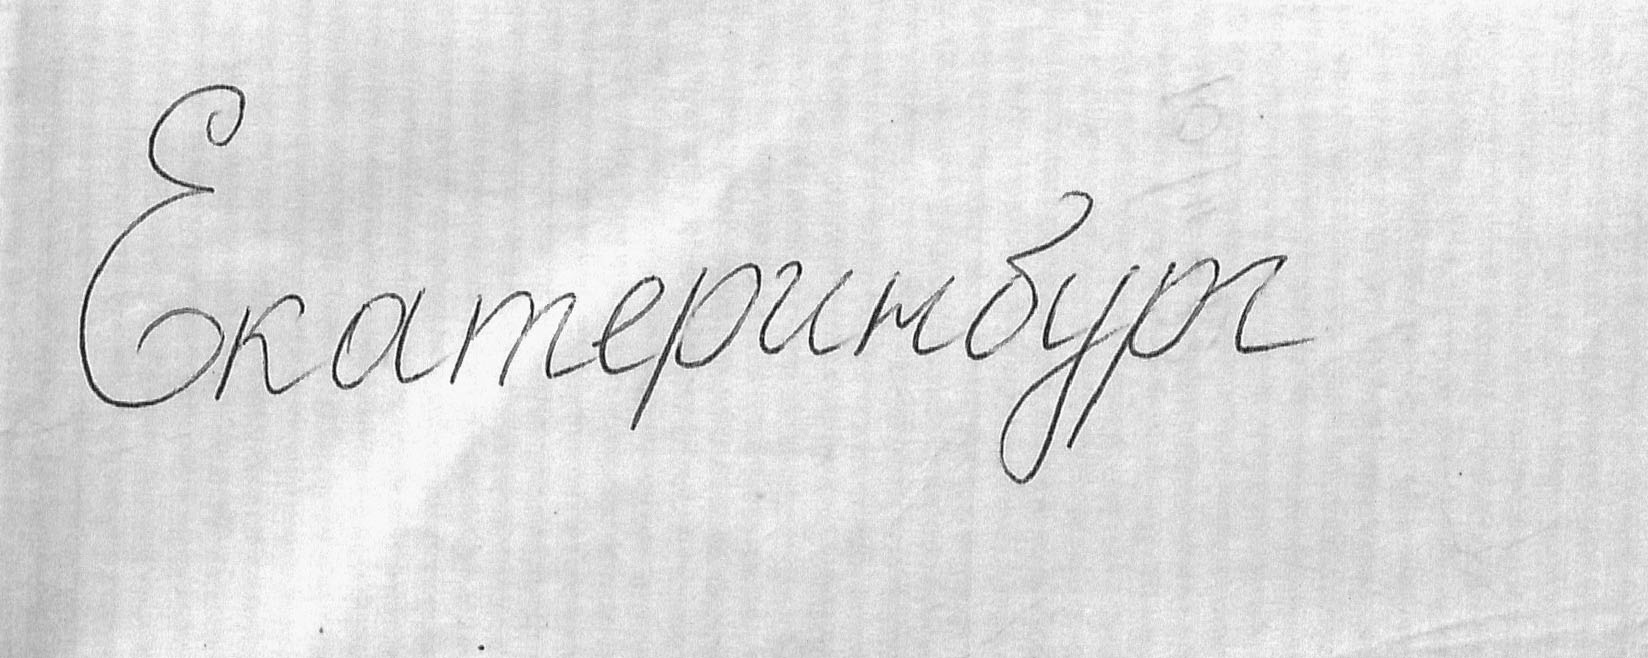 Екатеринбург